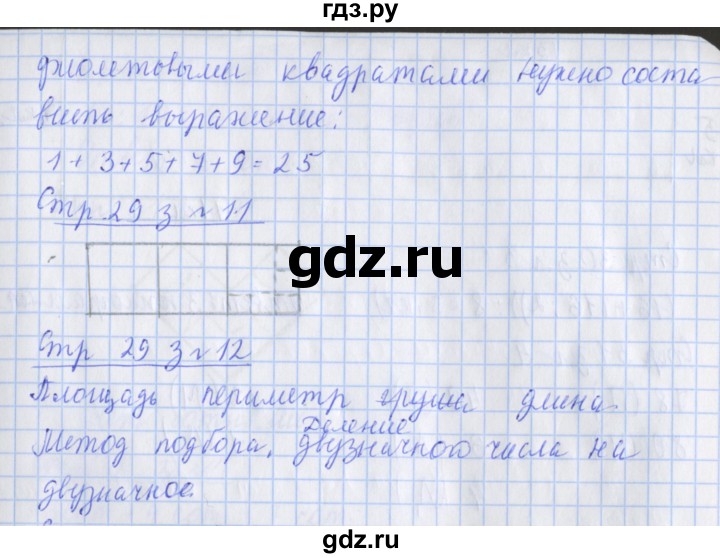 гдз.ру
фиолетовыми квадратами нужно соста
вить выражение:
1 + 3 + 5 + 7 + 9 = 25
Стр 29 з № 11
gdz.ru
Стр 29 з № 12
Площадь периметр груша длина
Деление
Метод подбора. двузначного числа на
двузначное.
gdz.ru